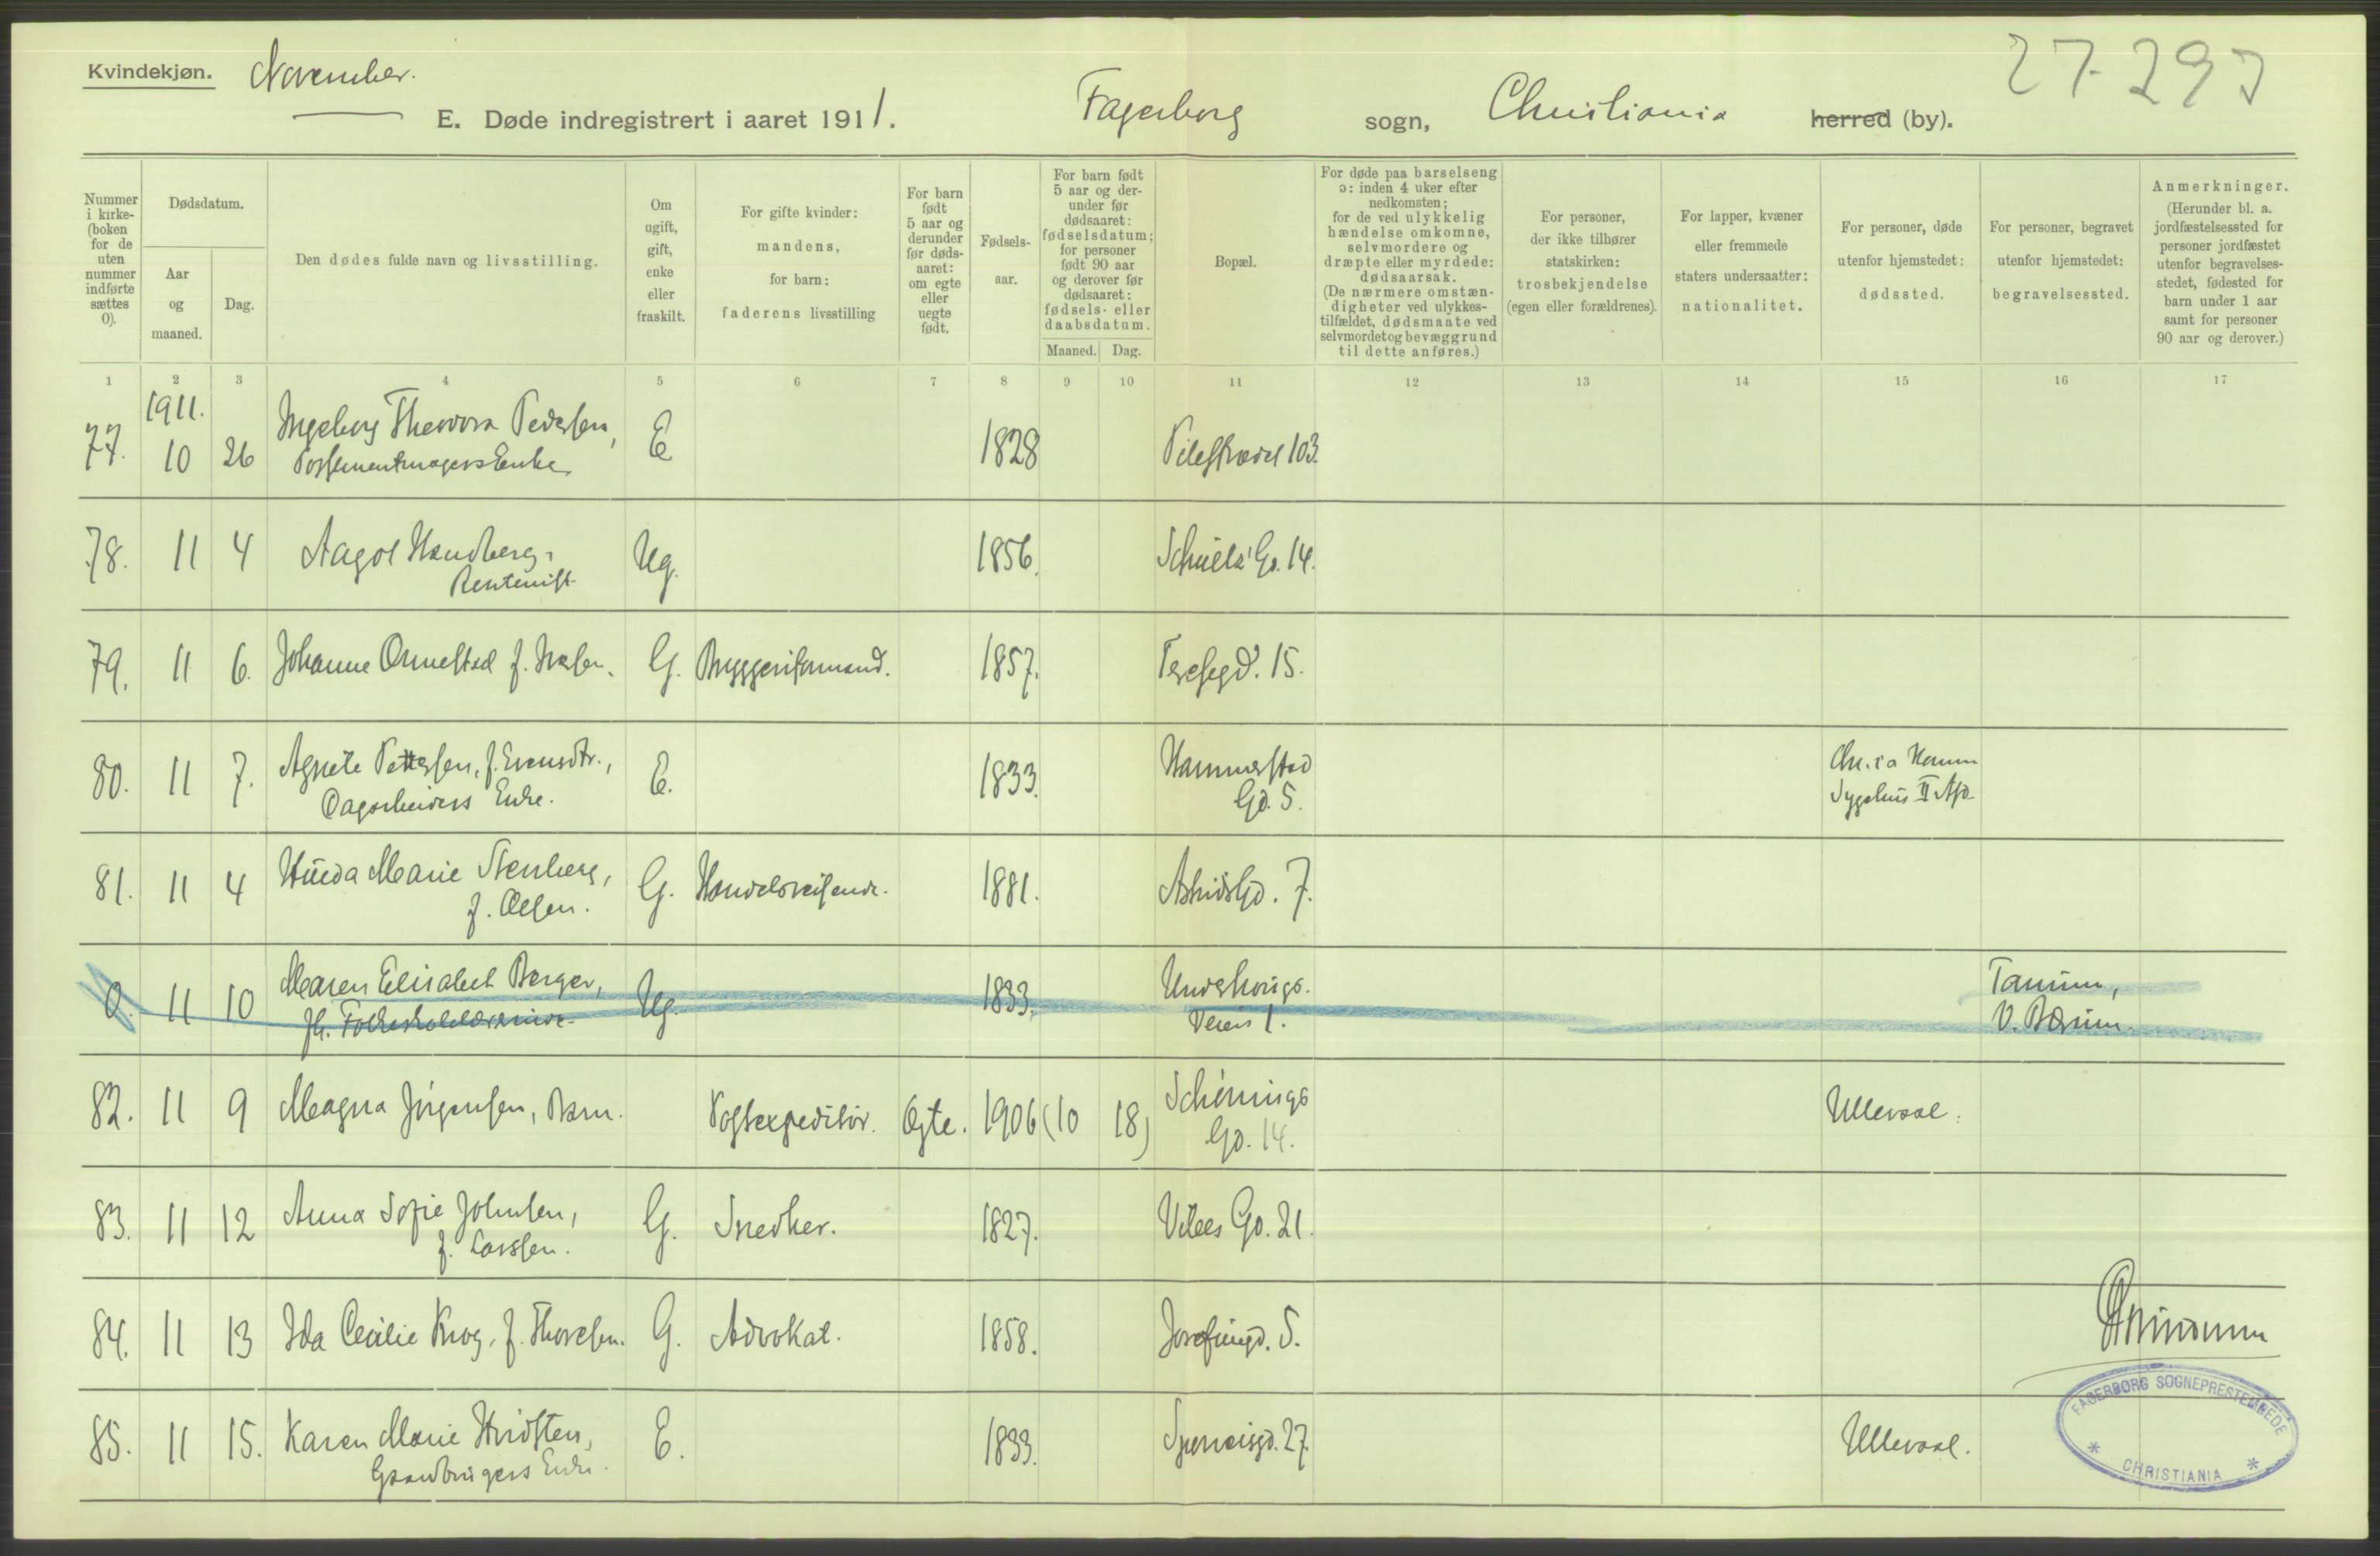 Kvindekjøn. November.
27-297
E. Døde indregistrert i aaret 1911. Fagerborg sogn, Christiania herred (by).
Nummer i kirke- (boken for de uten nummer indførte sættes 0).
Dødsdatum.
Aar og maaned.
Dag.
Den dødes fulde navn og livsstilling.
Om ugift, gift, enke eller fraskilt.
For gifte kvinder: mandens, for barn: faderens livsstilling
For barn født 5 aar og derunder før døds- aaret: om egte eller uegte født.
Fødsels- aar.
For barn født 5 aar og der- under før dødsaaret: fødselsdatum; for personer født 90 aar og derover før dødsaaret: fødsels- eller daabsdatum.
Maaned. Dag.
Bopæl.
For døde paa barselseng ɔ: inden 4 uker efter nedkomsten; for de ved ulykkelig hændelse omkomne, selvmordere og dræpte eller myrdede: dødsaarsak. (De nærmere omstæn- digheter ved ulykkes- tilfældet, dødsmaate ved selvmordet og bevæggrund til dette anføres.)
For personer, der ikke tilhører statskirken: trosbekjendelse (egen eller forældrenes).
For lapper, kvæner eller fremmede staters undersaatter: nationalitet.
For personer, døde utenfor hjemstedet: dødssted.
For personer, begravet utenfor hjemstedet: begravelsessted.
Anmerkninger. (Herunder bl. a. jordfæstelsessted for personer jordfæstet utenfor begravelses- stedet, fødested for barn under 1 aar samt for personer 90 aar og derover.)
1 2 3 4 5 6 7 8 9 10 11 12 13 14 15 16 17
1911.
77. 10 26 Ingeborg Theodora Pedersen, E 1828 Pilestrædet 103.
Possementmagers Enke
78. 11 4 Aagot Handberg, Ug. 1856. Schultz' Gd. 14.
Rentenist
79. 11 6. Johanne Ornestad f. Iversen. G. Bryggeriformand. 1857. Teresegd. 15.
80. 11 7. Agnete Pettersen, f. Evensdtr., E. 1833. Hammerstad Chr.ia Komm
Dagarbeiders Enke. Gd. 5. Sygehus II Afd.
81. 11 4 Hilda Marie Stenberg, G. Handelsreisende. 1881. AstridsGd. 7.
f. Olsen.
0. 11 10 Maren Elisabet Berger, Ug. 1833. Underhaugs. Tanum,
fh. Folkeskolelærerinde Veien 1. V. Bærum.
82. 11 9 Magna Jørgensen, Barn. Postexpeditør. Egte. 1906 (10 18) Schönings Ullevaal.
Gd. 14.
83. 11 12 Anna Sofie Johnsen, G. Snedker. 1827. Vibes Gd. 21.
f. Larssen.
84. 11 13 Ida Cecilie Krog, f. Thoresen. G. Advokat. 1858. Josefinegd. 5.
85. 11 15. Karen Marie Hvidsten, E. 1833. Sporveisgd. 27. Ullevaal.
Gaardbrugers Enke.
FAGERBORG SOGNEPRESTEMBEDE
* CHRISTIANIA *